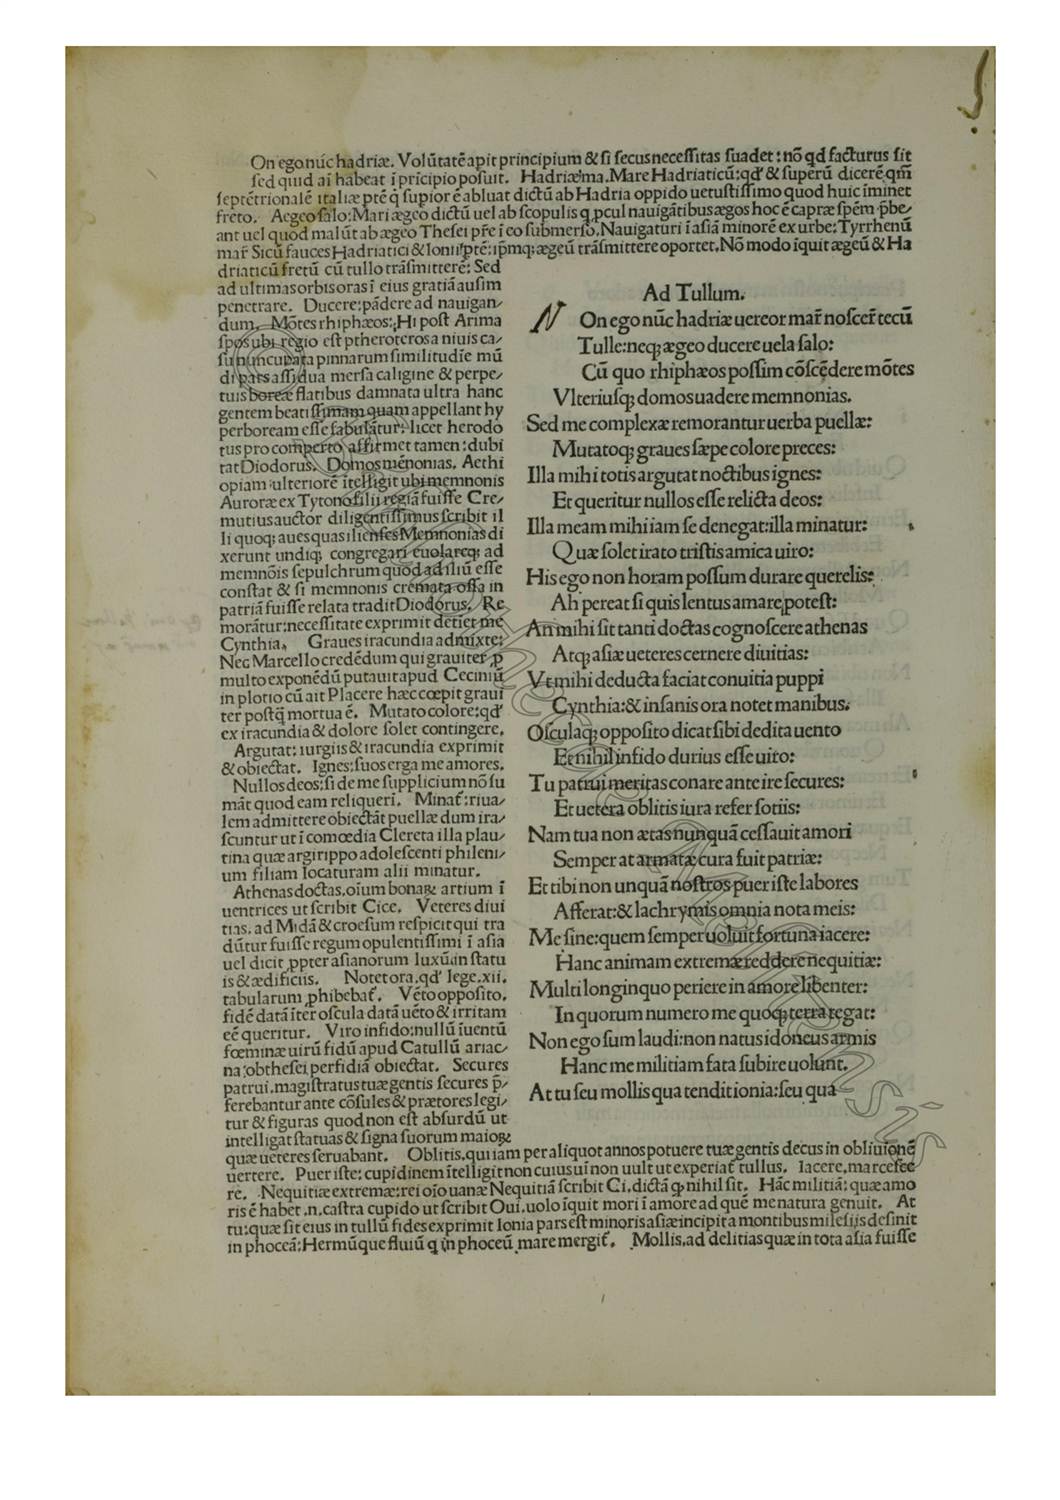 On ego nūc hadriæ. Volūtatē apit principium & si secus necessitas suadet: nō qd facturus sit
sed quid ai habeat ī prīcipio posuit. Hadriæ!ma. Mare Hadriaticū: qd' & superū dicerē qm̄
septētrionalē italiæ ptē q supior ē abluat dictū ab Hadria oppido uetustissimo quod huic īminet
freto. Aegeo salo: Mari ægeo dictū uel ab scopulis q pcul nauigātibus ægos hoc ē capræ spēm p̄be/
ant uel quod malūt ab ægeo Thesei pr̄e ī eo submerso. Nauigaturi ī asiā minorē ex urbe: Tyrrhenū
mar̄ Sicū fauces Hadriatici & Ionii ptē: ipmq; ægeū trāsmittere oportet. Nō modo īquit ægeū & Ha
driaticū fretū cū tullo trāsmitterē: Sed
ad ultimas orbis oras ī eius gratiā ausim
penetrare. Ducere: pādere ad nauigan/
dum. Mōtes rhiphæos: Hi post Arima
spos ubi regio est ptheroterosa niuis ca/
su nuncupata pinnarum similitudīe mū
di pars assidua mersa caligine & perpe/
tuis boreæ flatibus damnata ultra hanc
gentem beatissimam quam appellant hy
perboream esse fabulātur: licet herodo
tus pro comperto affirmet tamen: dubi
tat Diodorus. Domos mēnonias. Aethi
opiam ulteriorē ītelligit ubi memnonis
Auroræ ex Tytono filii regiā fuisse Cre/
mutius auctor diligentissimus scribit il
li quoq; aues quas ilienses Memnonias di
xerunt undiq; congregari euolareq; ad
memnōis sepulchrum quod ad iliū esse
constat & si memnonis cremata ossa in
patriā fuisse relata tradit Diodorus. Re
morātur: necessitate exprimit detiet me
Cynthia. Graues iracundia admixte:
Nec Marcello credēdum qui grauiter p
multo exponēdū putauit apud Ceciniū
in plotio cū ait Placere hæc cœpit graui
ter postq̄ mortua ē. Mutato colore: qd'
ex iracundia & dolore solet contingere.
Argutat: iurgiis & iracundia exprimit
& obiectat. Ignes: suos erga me amores.
Nullos deos: si de me supplicium nō su
māt quod eam reliqueri. Minat̄: riua/
lem admittere obiectāt puellæ dum ira/
scuntur ut ī comœdia Clereta illa plau/
tina quæ argirippo adolescenti phileni/
um filiam locaturam alii minatur.
Athenas doctas. oīum bonaꝝ artium ī
uentrices ut scribit Cice. Veteres diui
tias. ad Midā & croesum respicit qui tra
dūtur fuisse regum opulentissimi ī asia
uel dicit ppter asianorum luxū in statu
is & ædificiis. Notet ora. qd' lege. xii.
tabularum phibebat̄. Vēto opposito.
fidē datā īter oscula datā uēto & irritam
eē queritur. Viro infido: nullū īuentū
fœminæ uirū fidū apud Catullū ariac/
na: ob thesei perfidiā obiectat. Secures
patrui. magistratus tuæ gentis secures p̄/
ferebantur ante cōsules & prætores legi/
tur & figuras quod non est absurdū ut
intelligat statuas & signa suorum maioꝝ
quæ ueteres seruabant. Oblitis. qui iam per aliquot annos potuere tuæ gentis decus in obliuionē
uertere. Puer iste: cupidinem ītelligit non cuiusui non uult ut experiat̄ tullus. Iacere. marcesce
re. Nequitiæ extremæ: rei oīo uanæ Nequitiā scribit Ci. dictā q nihil sit. Hāc militiā: quæ amo
ris ē habet .n. castra cupido ut scribit Oui. uolo īquit mori ī amore ad quē me natura genuit. At
tu: quæ sit eius in tullū fides exprimit Ionia pars est minoris asiæ incipit a montibus milesiis desinit
in phoceā: Hermūque fluiū q in phoceū mare mergit̄. Mollis. ad delitias quæ in tota asia fuisse
Ad Tullum.
NOn ego nūc hadriæ uereor mar̄ noscer̄ tecū
Tulle: neq; ægeo ducere uela salo:
Cū quo rhiphæos possim cōscędere mōtes
Vlteriusq; domos uadere memnonias.
Sed me complexæ remorantur uerba puellæ:
Mutatoq; graues sæpe colore preces:
Illa mihi totis argutat noctibus ignes:
Et queritur nullos esse relicta deos:
Illa meam mihi iam se denegat: illa minatur:
Quæ solet irato tristis amica uiro:
His ego non horam possum durare querelis:
Ah pereat si quis lentus amare potest:
An mihi sit tanti doctas cognoscere athenas
Atq; asiæ ueteres cernere diuitias:
Vt mihi deducta faciat conuitia puppi
Cynthia: & insanis ora notet manibus:
Osculaq; opposito dicat sibi dedita uento
Et nihil infido durius esse uiro:
Tu patrui meritas conare ante ire secures:
Et uetera oblitis iura refer sotiis:
Nam tua non ætas nunquā cessauit amori
Semper at armatæ cura fuit patriæ:
Et tibi non unquā nostros puer iste labores
Afferat: & lachrymis omnia nota meis:
Me sine: quem semper uoluit fortuna iacere:
Hanc animam extremæ reddere nequitiæ:
Multi longinquo periere in amore libenter:
In quorum numero me quoq; terra tegat:
Non ego sum laudi: non natus idoneus armis
Hanc me militiam fata subire uolunt.
At tu seu mollis qua tendit ionia: seu qua